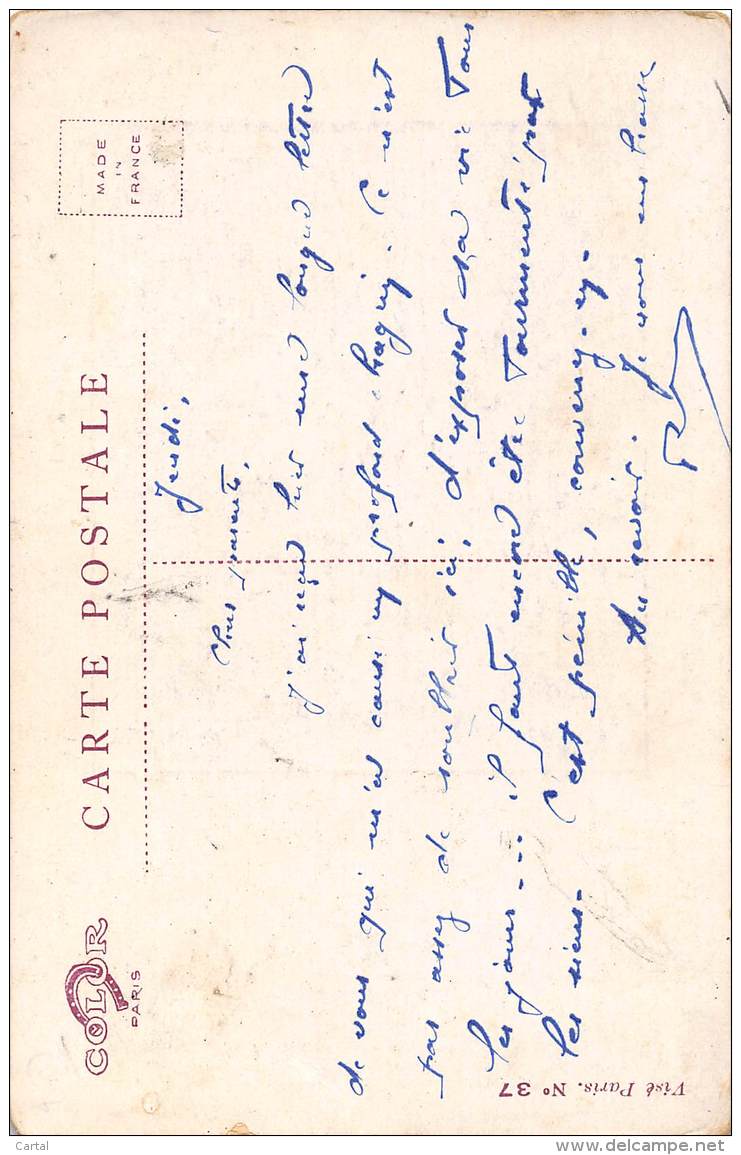 COLOR
PARIS
CARTE POSTALE
MADE
IN
FRANCE
Jeudi,
Chers parents,
J'ai reçu hier une longue lettre
de vous qui m'a causé un profond chagrin. Ce n'est
pas assez de souffrir ici, d'exposer sa vie tous
les jours... il faut encore être tourmenté par
les siens. C'est pénible, convenez-en.
Au revoir. Je vous embrasse
Visé Paris. No 37
Cartal
www.delcampe.net